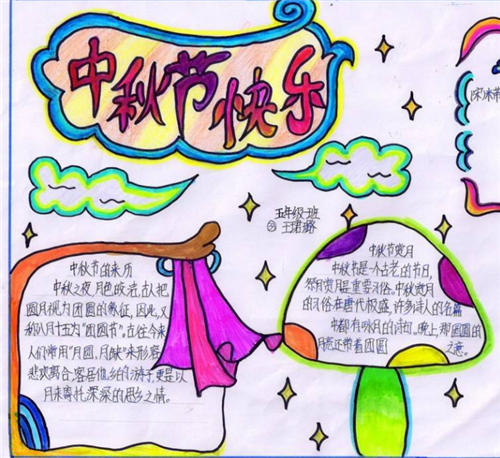 中秋节快乐
五年级一班
中秋节的来历
中秋之夜,月色皎洁,古人把
圆月视为团圆的象征,因此,又
称八月十五为“团圆节”。古往今来,
人们常用“月圆、月缺”来形容
悲欢离合,客居他乡的游子,更是以
月来寄托深深的思乡之情。
中秋节赏月
中秋节是一个古老的节日,
祭月赏月是重要习俗。中秋赏月
的习俗,在唐代极盛,许多诗人的名篇
中都有咏月的诗句,晚上,观圆圆的
月亮还带着团圆 之意。